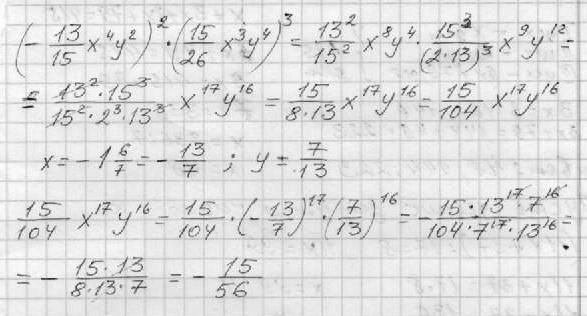 (-13/15 x⁴y²)² · (15/26 x³y⁴)³ = 13²/15² x⁸y⁴ · 15³/(2·13)³ x⁹y¹² =
= 13²·15³/15²·2³·13³ x¹⁷y¹⁶ = 15/8·13 x¹⁷y¹⁶ = 15/104 x¹⁷y¹⁶
x = -1 6/7 = -13/7 ; y = 7/13
15/104 x¹⁷y¹⁶ = 15/104 · (-13/7)¹⁷ · (7/13)¹⁶ = -15·13¹⁷·7¹⁶/104·7¹⁷·13¹⁶ =
= -15·13/8·13·7 = -15/56